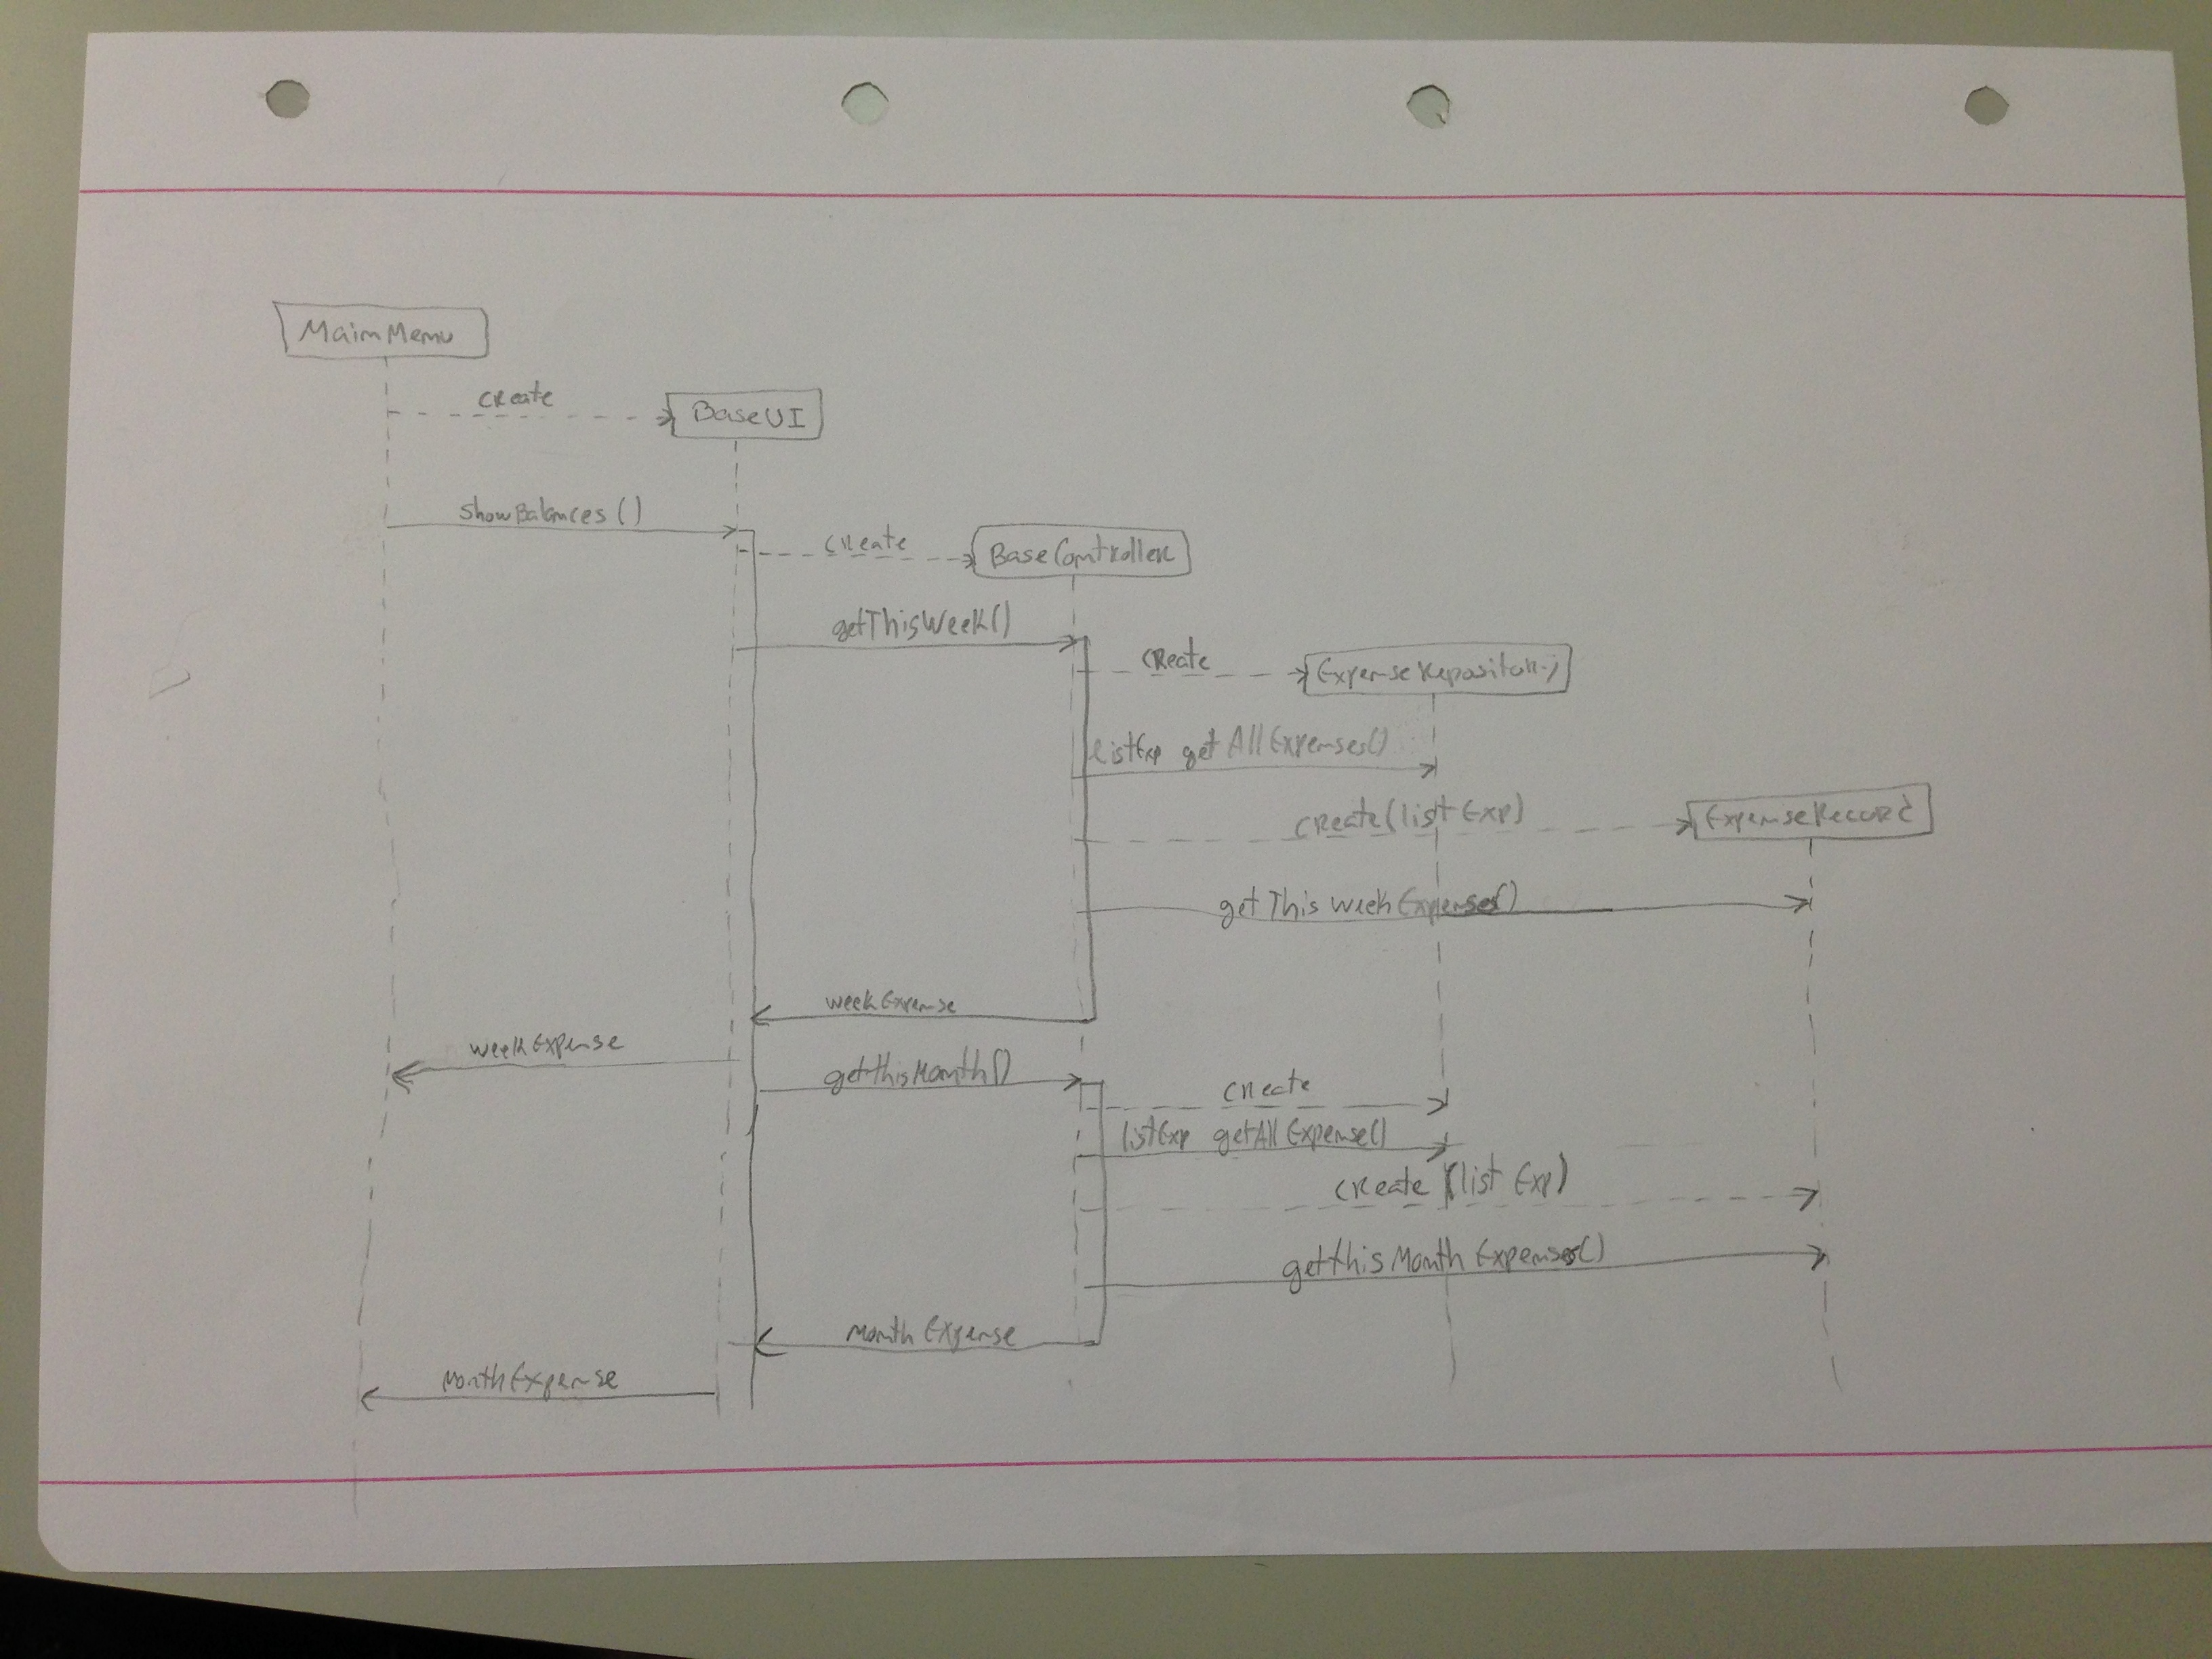 MainMenu
create
BaseUI
showBalances()
create
BaseController
getThisWeek()
create
ExpenseRepository
listExp getAllExpenses()
create(list Exp)
ExpenseRecord
getThisWeekExpenses()
weekExpense
weekExpense
getthisMonth()
create
listExp getAllExpense()
create (list Exp)
getthisMonthExpenses()
monthExpense
monthExpense